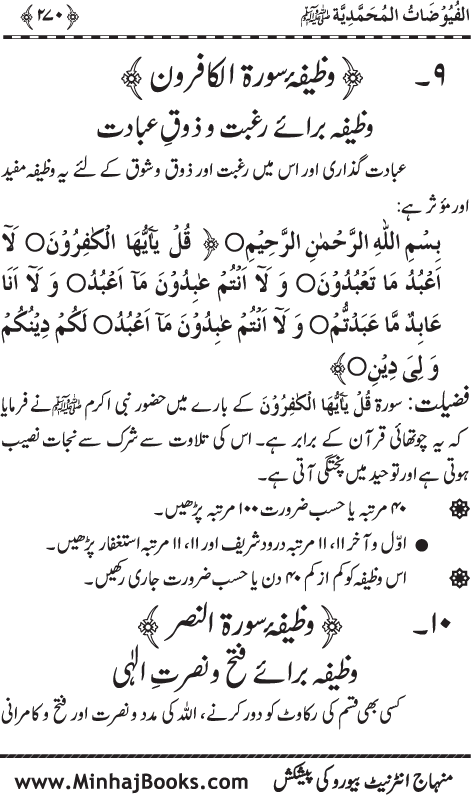 الفُيُوْضَاتُ الْمُحَمَّدِيَّة ﷺ ﴿۲۷۰﴾
۹۔ ﴿ وظیفۂ سورۃ الکافرون ﴾
وظیفہ برائے رغبت و ذوقِ عبادت
عبادت گذاری اور اس میں رغبت اور ذوق و شوق کے لئے یہ وظیفہ مفید
اور مؤثر ہے:
بِسْمِ اللهِ الرَّحْمٰنِ الرَّحِيْمِ○ ﴿ قُلْ يٰٓاَيُّهَا الْكٰفِرُوْنَ○ لَآ
اَعْبُدُ مَا تَعْبُدُوْنَ○ وَ لَآ اَنْتُمْ عٰبِدُوْنَ مَآ اَعْبُدُ○ وَ لَآ اَنَا
عَابِدٌ مَّا عَبَدْتُّمْ○ وَ لَآ اَنْتُمْ عٰبِدُوْنَ مَآ اَعْبُدُ○ لَكُمْ دِيْنُكُمْ
وَ لِیَ دِيْنِ○﴾
فضیلت: سورۃ قُلْ يٰٓاَيُّهَا الْكٰفِرُوْنَ کے بارے میں حضور نبی اکرم ﷺ نے فرمایا
کہ یہ چوتھائی قرآن کے برابر ہے۔ اس کی تلاوت سے شرک سے نجات نصیب
ہوتی ہے اور توحید میں پختگی آتی ہے۔
۴۰ مرتبہ یا حسب ضرورت ۱۰۰ مرتبہ پڑھیں۔
● اوّل و آخر ۱۱، ۱۱ مرتبہ درود شریف اور ۱۱، ۱۱ مرتبہ استغفار پڑھیں۔
اس وظیفہ کو کم از کم ۴۰ دن یا حسب ضرورت جاری رکھیں۔
۱۰۔ ﴿ وظیفۂ سورۃ النصر ﴾
وظیفہ برائے فتح و نصرتِ الٰہی
کسی بھی قسم کی رکاوٹ کو دور کرنے، اللہ کی مدد و نصرت اور فتح و کامرانی
منہاج انٹرنیٹ بیورو کی پیشکش www.MinhajBooks.com